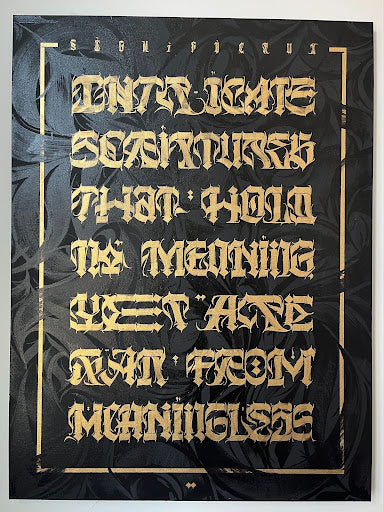 INTRICATE
SCRIPTURES
THAT HOLD
NO MEANING
YET ARE
FAR FROM
MEANINGLESS